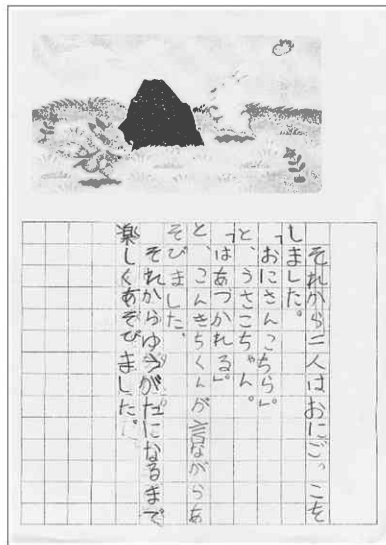 それから二人はおにごっこを
しました。
「おにさんこちら」。
と、うさこちゃん。
「はあつかれる」。
と、こんきちくんが言ながらあ
そびました、
それからゆうがたになるまで
楽しくあそびました。